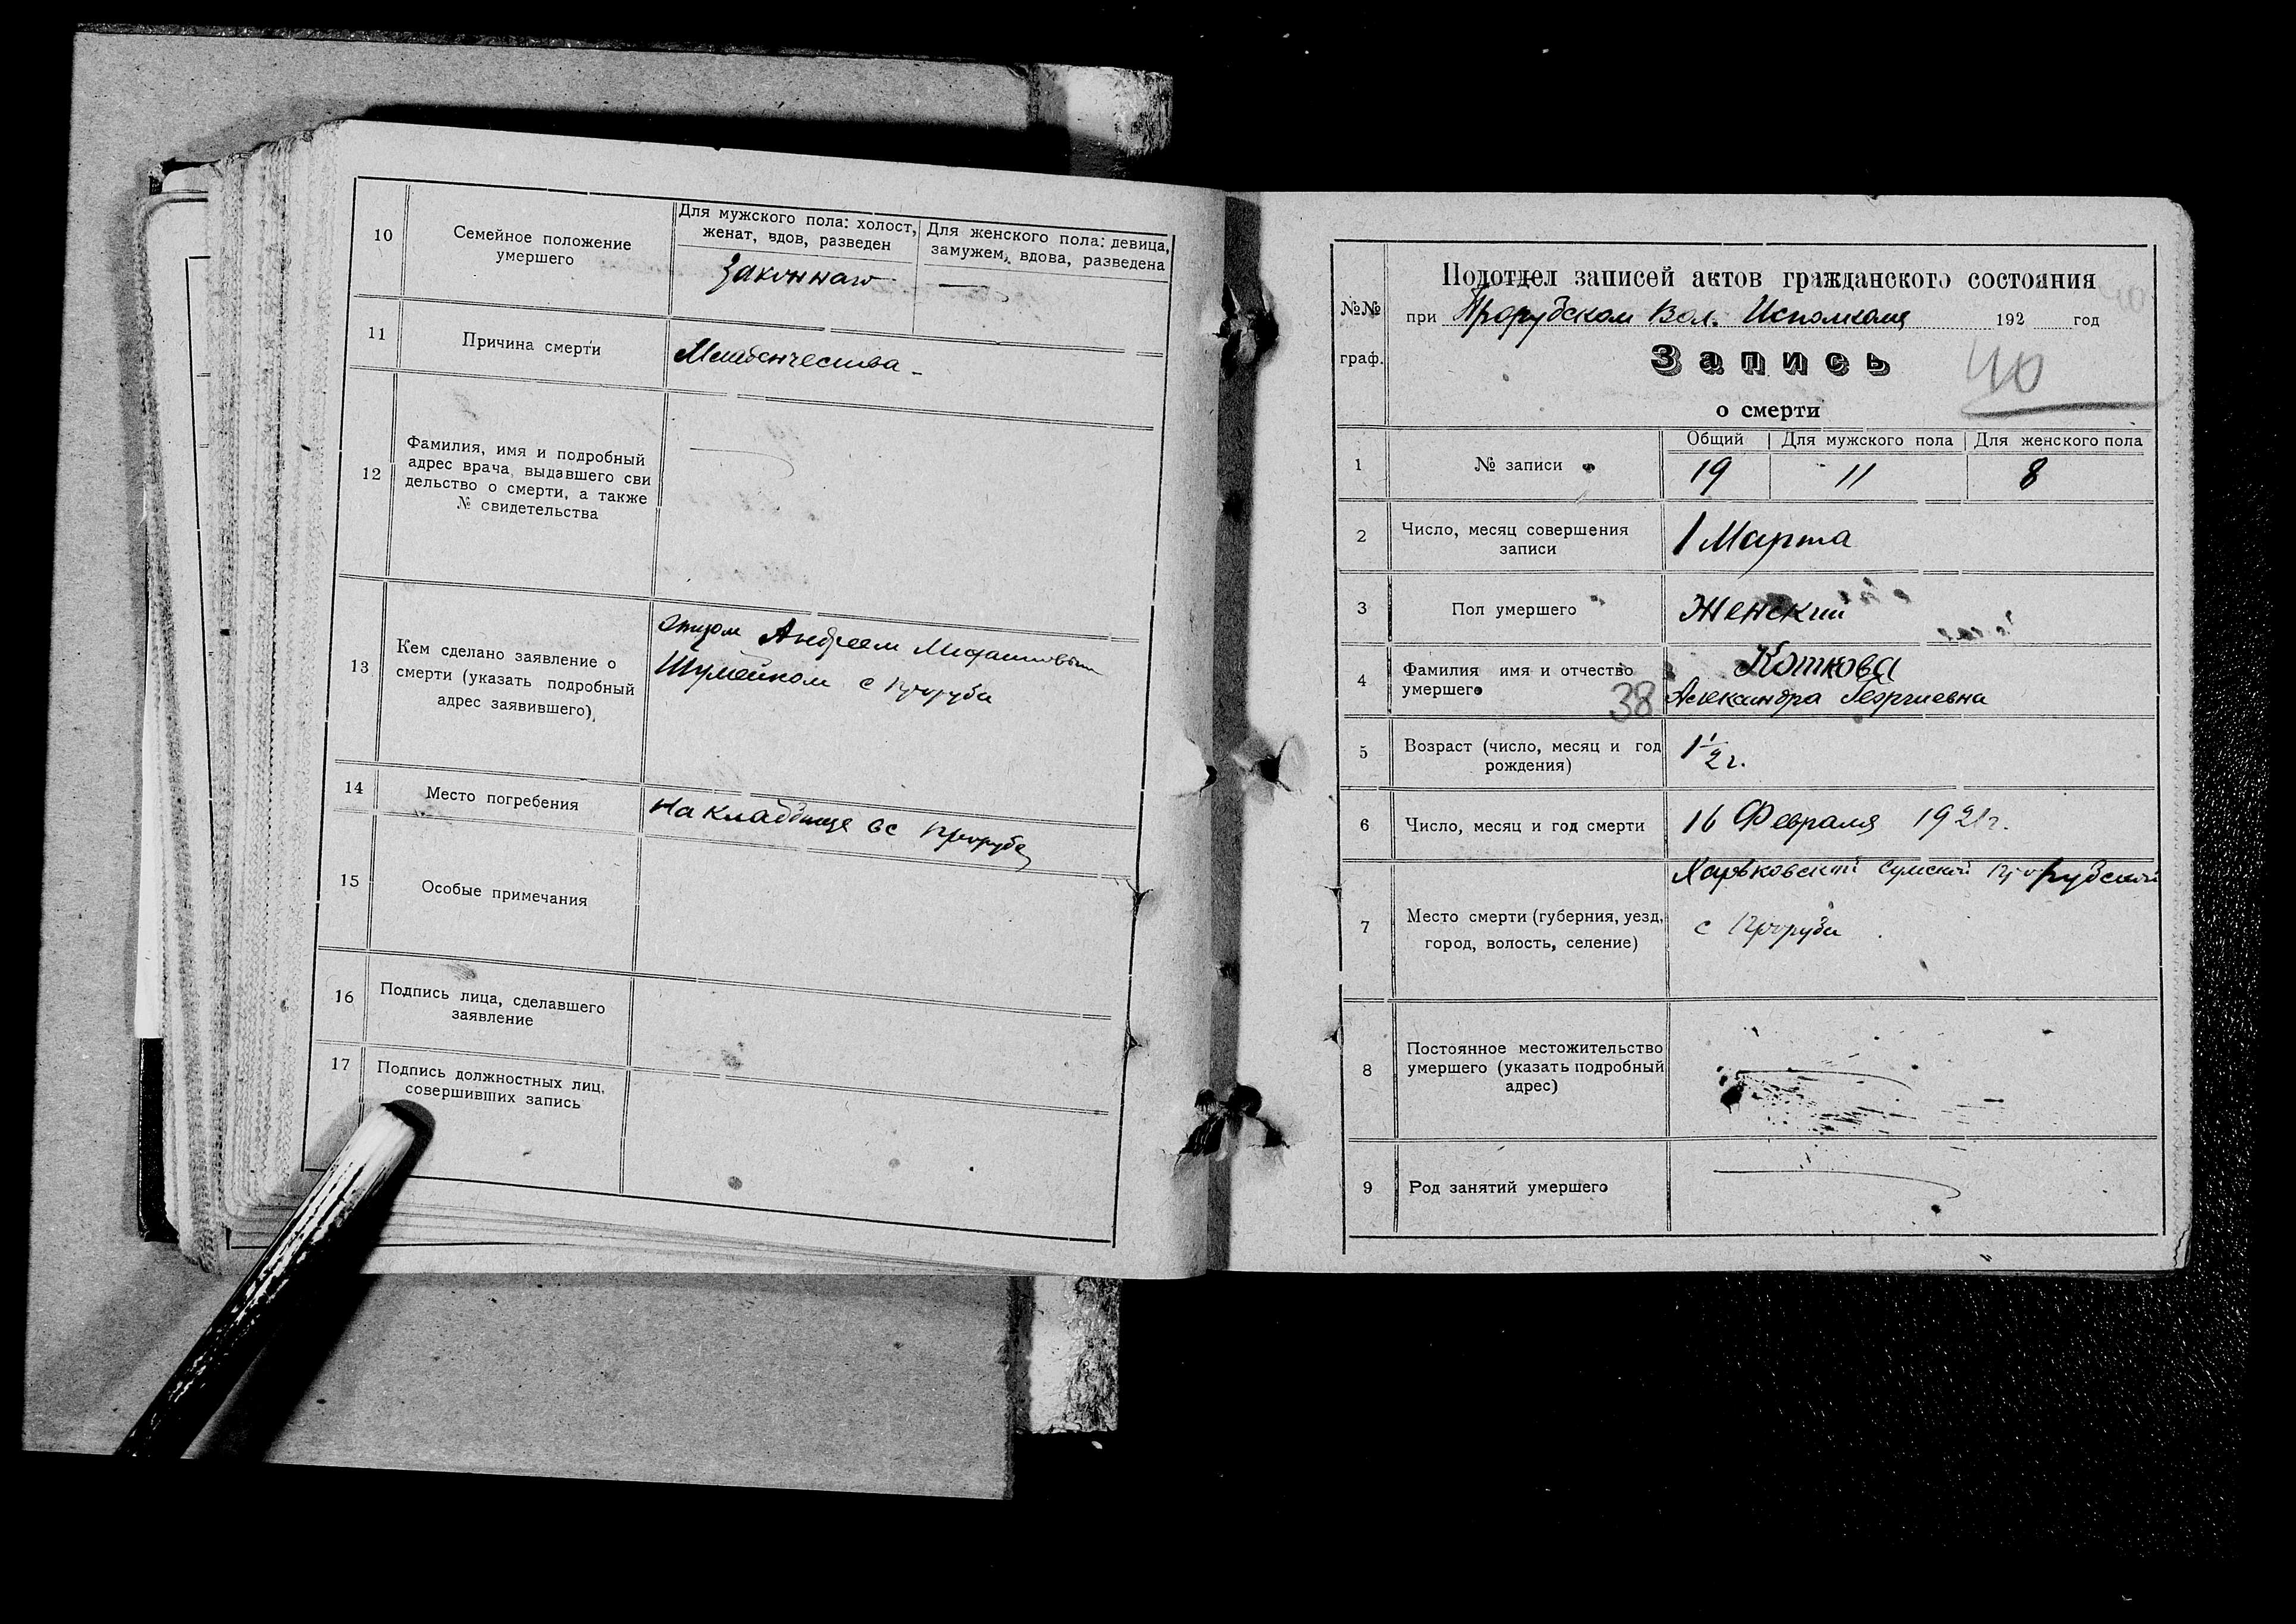 10
Семейное положение
умершего
Для мужского пола: холост,
женат, вдов, разведен
Для женского пола: девица,
замужем, вдова, разведена
Законнаго
11
Причина смерти
Младенчества
12
Фамилия, имя и подробный
адрес врача, выдавшего сви
дельство о смерти, а также
№ свидетельства
13
Кем сделано заявление о
смерти (указать подробный
адрес заявившего)
отцом Андреем
Шумейком с Проруби
14
Место погребения
на кладбище вс Прорубе
15
Особые примечания
16
Подпись лица, сделавшего
заявление
17
Подпись должностных лиц,
совершивших запись
№№
граф.
Подотдел записей актов гражданского состояния
при Прорубском Вол. Исполкоме 192 год
Запись
40
о смерти
1
№ записи
Общий
Для мужского пола
Для женского пола
19
11
8
2
Число, месяц совершения
записи
1 Марта
3
Пол умершего
Женский
4
Фамилия имя и отчество
умершего
38
Коткова
Александра Георгиевна
5
Возраст (число, месяц и год
рождения)
1 1/2 г.
6
Число, месяц и год смерти
16 Февраля 1921г.
7
Место смерти (губерния, уезд,
город, волость, селение)
Харьковской Сумской Прорубской
с Проруби
8
Постоянное местожительство
умершего (указать подробный
адрес)
9
Род занятий умершего